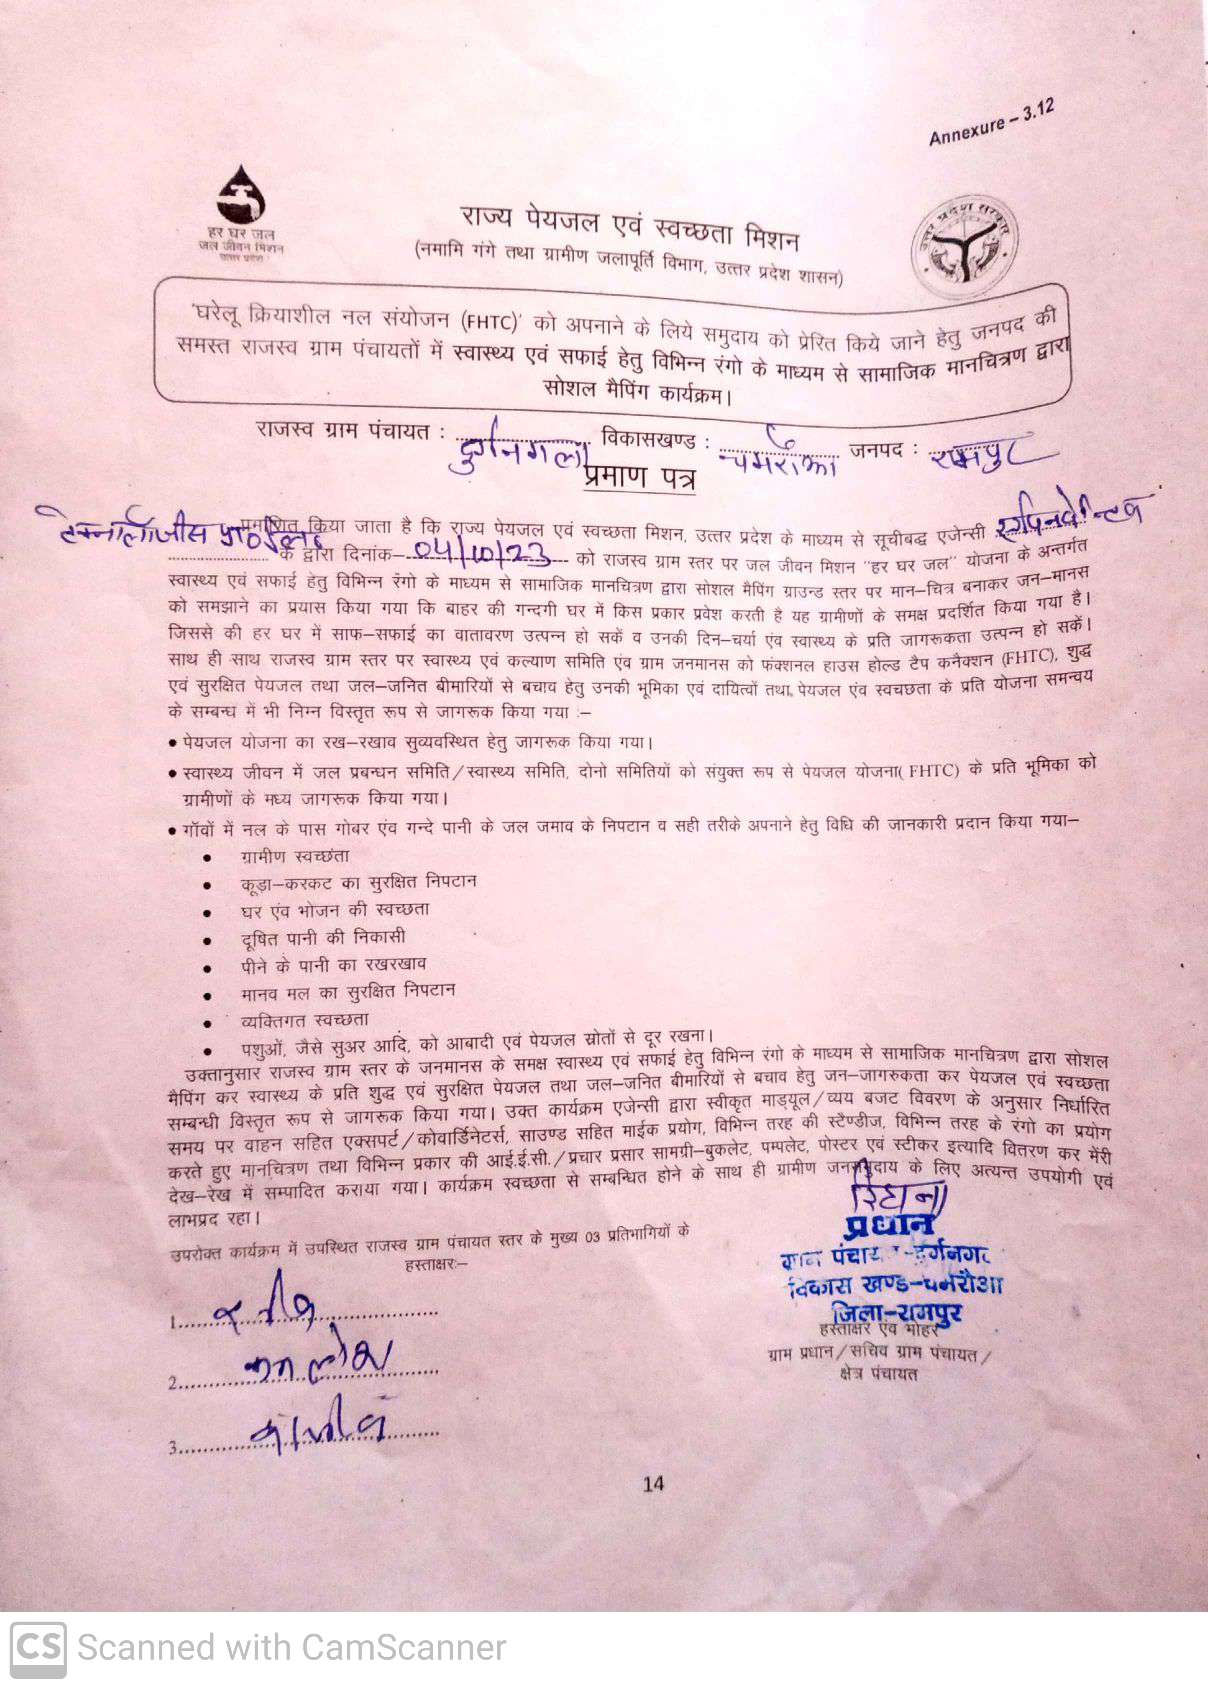 Annexure – 3.12
हर घर जल
जल जीवन मिशन
उत्तर प्रदेश
उत्तर प्रदेश सरकार
राज्य पेयजल एवं स्वच्छता मिशन
(नमामि गंगे तथा ग्रामीण जलापूर्ति विभाग, उत्तर प्रदेश शासन)
'घरेलू क्रियाशील नल संयोजन (FHTC)' को अपनाने के लिये समुदाय को प्रेरित किये जाने हेतु जनपद की
समस्त राजस्व ग्राम पंचायतों में स्वास्थ्य एवं सफाई हेतु विभिन्न रंगो के माध्यम से सामाजिक मानचित्रण द्वारा
सोशल मैपिंग कार्यक्रम।
राजस्व ग्राम पंचायत : दुर्गनगला विकासखण्ड : चमरौआ जनपद : रामपुर
प्रमाण पत्र
प्रमाणित किया जाता है कि राज्य पेयजल एवं स्वच्छता मिशन, उत्तर प्रदेश के माध्यम से सूचीबद्ध एजेन्सी
टेक्नोलॉजीस प्रा०लि० के द्वारा दिनांक–04/10/23 को राजस्व ग्राम स्तर पर जल जीवन मिशन "हर घर जल" योजना के अन्तर्गत
स्वास्थ्य एवं सफाई हेतु विभिन्न रंगो के माध्यम से सामाजिक मानचित्रण द्वारा सोशल मैपिंग ग्राउन्ड स्तर पर मान–चित्र बनाकर जन–मानस
को समझाने का प्रयास किया गया कि बाहर की गन्दगी घर में किस प्रकार प्रवेश करती है यह ग्रामीणों के समक्ष प्रदर्शित किया गया है।
जिससे की हर घर में साफ–सफाई का वातावरण उत्पन्न हो सकें व उनकी दिन–चर्या एंव स्वास्थ्य के प्रति जागरूकता उत्पन्न हो सकें।
साथ ही साथ राजस्व ग्राम स्तर पर स्वास्थ्य एवं कल्याण समिति एंव ग्राम जनमानस को फंक्शनल हाउस होल्ड टैप कनैक्शन (FHTC), शुद्ध
एवं सुरक्षित पेयजल तथा जल–जनित बीमारियों से बचाव हेतु उनकी भूमिका एवं दायित्वों तथा पेयजल एंव स्वचछता के प्रति योजना समन्वय
के सम्बन्ध में भी निम्न विस्तृत रूप से जागरूक किया गया :–
• पेयजल योजना का रख–रखाव सुव्यवस्थित हेतु जागरूक किया गया।
• स्वास्थ्य जीवन में जल प्रबन्धन समिति/स्वास्थ्य समिति, दोनो समितियों को संयुक्त रूप से पेयजल योजना( FHTC) के प्रति भूमिका को
ग्रामीणों के मध्य जागरूक किया गया।
• गॉवों में नल के पास गोबर एंव गन्दे पानी के जल जमाव के निपटान व सही तरीके अपनाने हेतु विधि की जानकारी प्रदान किया गया–
• ग्रामीण स्वच्छंता
• कूड़ा–करकट का सुरक्षित निपटान
• घर एंव भोजन की स्वच्छता
• दूषित पानी की निकासी
• पीने के पानी का रखरखाव
• मानव मल का सुरक्षित निपटान
• व्यक्तिगत स्वच्छता
• पशुओं, जैसे सुअर आदि, को आबादी एवं पेयजल स्रोतों से दूर रखना।
उक्तानुसार राजस्व ग्राम स्तर के जनमानस के समक्ष स्वास्थ्य एवं सफाई हेतु विभिन्न रंगो के माध्यम से सामाजिक मानचित्रण द्वारा सोशल
मैपिंग कर स्वास्थ्य के प्रति शुद्ध एवं सुरक्षित पेयजल तथा जल–जनित बीमारियों से बचाव हेतु जन–जागरुकता कर पेयजल एवं स्वच्छता
सम्बन्धी विस्तृत रूप से जागरूक किया गया। उक्त कार्यक्रम एजेन्सी द्वारा स्वीकृत माड्यूल/व्यय बजट विवरण के अनुसार निर्धारित
समय पर वाहन सहित एक्सपर्ट/कोवार्डिनेटर्स, साउण्ड सहित माईक प्रयोग, विभिन्न तरह की स्टैण्डीज, विभिन्न तरह के रंगो का प्रयोग
करते हुए मानचित्रण तथा विभिन्न प्रकार की आई.ई.सी./प्रचार प्रसार सामग्री–बुकलेट, पम्पलेट, पोस्टर एवं स्टीकर इत्यादि वितरण कर मेरी
देख–रेख में सम्पादित कराया गया। कार्यक्रम स्वच्छता से सम्बन्धित होने के साथ ही ग्रामीण जनसमुदाय के लिए अत्यन्त उपयोगी एवं
लाभप्रद रहा।
प्रधान
ग्राम पंचायत-दुर्गनगला
विकास खण्ड-चमरौआ
जिला-रामपुर
हस्ताक्षर एंव मोहर
ग्राम प्रधान/सचिव ग्राम पंचायत/
क्षेत्र पंचायत
उपरोक्त कार्यक्रम में उपस्थित राजस्व ग्राम पंचायत स्तर के मुख्य 03 प्रतिभागियों के
हस्ताक्षरः–
1.
2. कमलेश
3.
14
CS Scanned with CamScanner